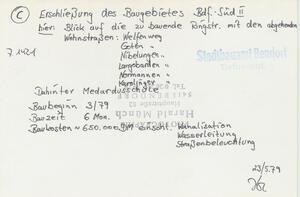 C Erschließung des Baugebietes Bdf.-Süd II
hier: Blick auf die zu bauende Ringstr. mit den abgehenden
Wohnstraßen: Welfenweg
7 1421
Goten "
Nibelungen "
Langobarden "
Normannen "
Karolinger "
Stadtbauamt Bendorf
Dahinter Medardusschule
Baubeginn 3/79
Bauzeit 6 Mon.
Baukosten ~ 650.000 DM einschl. Kanalisation
Wasserleitung
Straßenbeleuchtung
Harald Münch
23/5.79